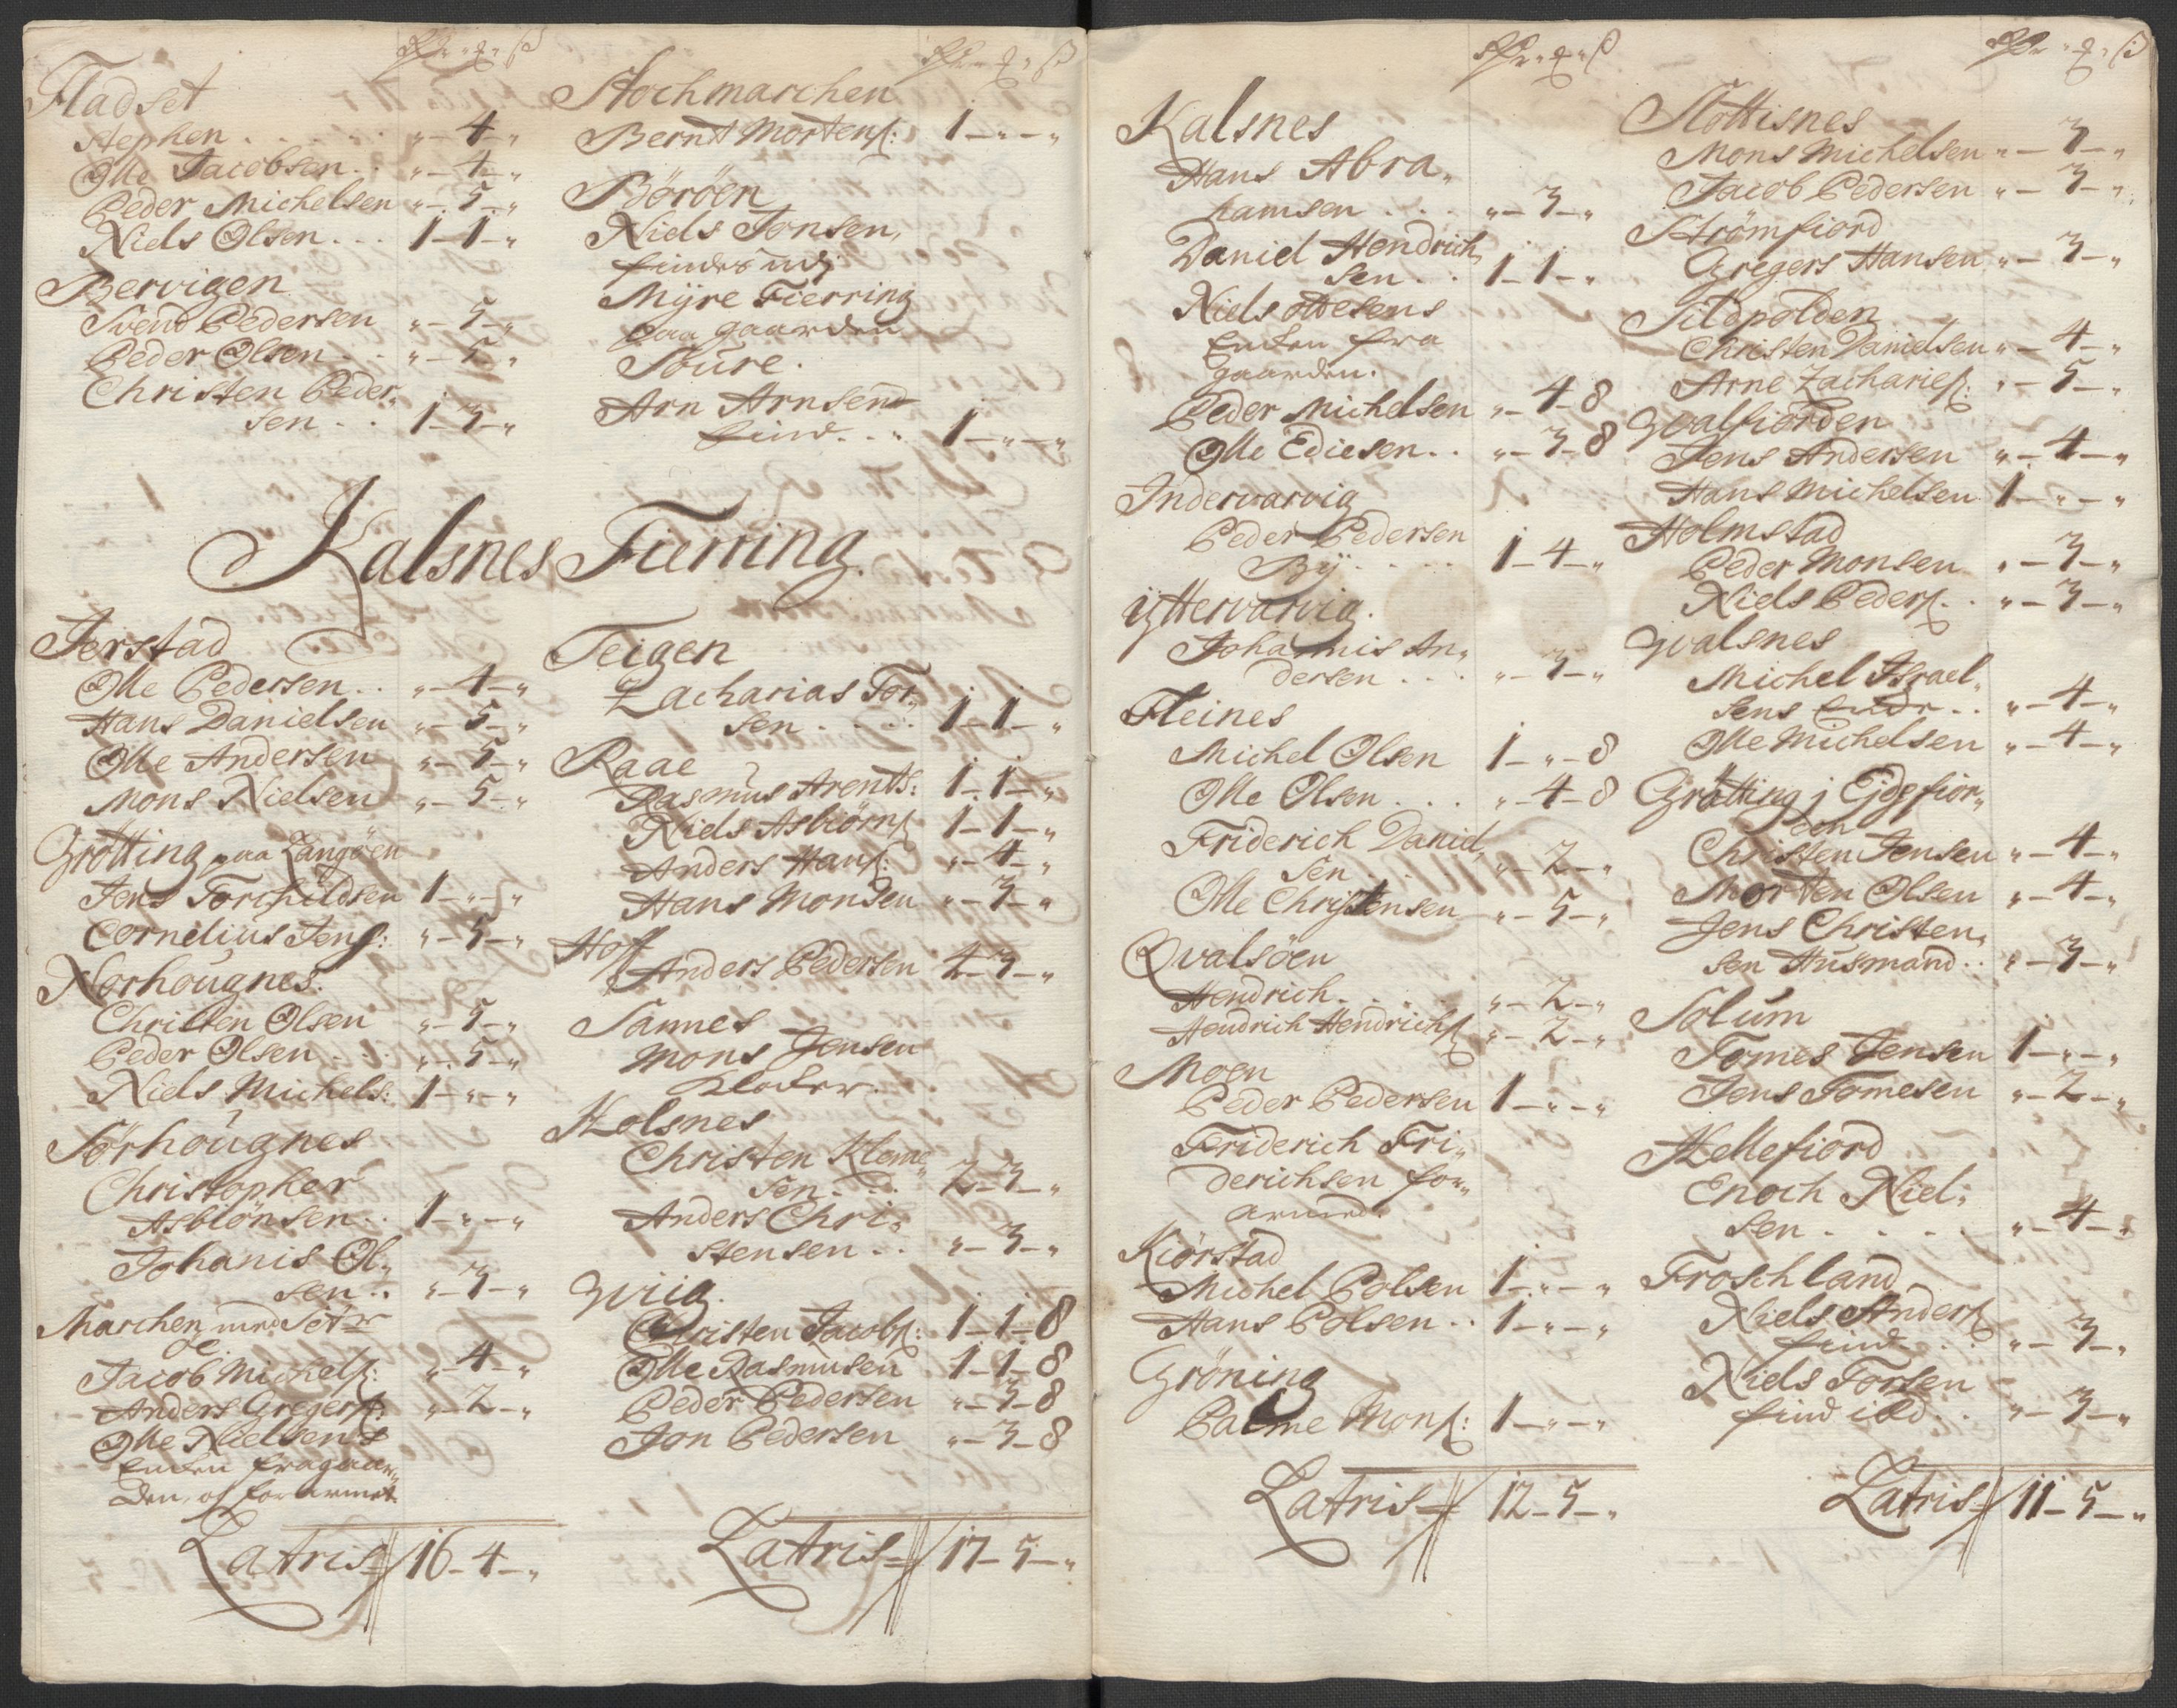 Fladset
Stephen . . . . . „ – 4 – „
Olle Jacobsen . . „ – 4 – „
Peder Michelsen „ – 5 – „
Niels Olsen . . . 1 – 1 – „
Bervigen
Svend Pedersen „ – 5 – „
Peder Olsen . . „ – 5 – „
Christen Peder„
sen . . 1 – 3 – „
Stochmarchen
Bernt Mortens: 1 – „ – „
Böröen
Niels Jonsen,
findes udj
Mÿre Fierring
paa gaarden
Soure.
Arn Arnsen
find . . „ 1 – „ – „
Kalsnes Fierring
Jerstad
Olle Pedersen . . „ – 4 – „
Hans Danielsen „ – 5 – „
Olle Andersen „ – 5 – „
Mons Nielsen „ – 5 – „
Grötting paa Langöen
Jens Torchildsen 1 – „ – „
Cornelius Jens: „ – 5 – „
Norhougnes.
Christen Olsen „ – 5 – „
Peder Olsen . . . „ – 5 – „
Niels Michels: 1 – „ – „
Sörhougnes
Christopher
Asbiönsen . . 1 – „ – „
Johanis Ol„
sen . . „ – 3 – „
Marchen med Set
Jacob Michels: „ – 4 – „
Anders Gregers: „ – 2 – „
Olle Nielsens
Enken fra gaar„
den, og forarmet
Latris 16 – 4 – „
Teigen
Zacharias Tor„
sen . . . . 1 – 1 – „
Raae
Rasmus Arents: 1 – 1 – „
Niels Asbiörns 1 – 1 – „
Anders Hans: „ – 4 – „
Hans Monsen „ – 3 – „
Hoff
Anders Pedersen 4 – 3 – „
Sannes
Mons Jensen
Klocker.
Holsnes
Christen Kleme„
sen . . . 2 – 3 – „
Anders Chri„
stensen . . „ – 3 – „
Christen Jacobs: 1 – 1 – 8
Olle Rasmusen 1 – 1 – 8
Peder Pedersen „ – 3 – 8
Jon Pedersen „ – 3 – 8
Latris 17 – 5 – „
Kalsnes
Hans Abra„
hamsen . . . „ – 3 – „
Daniel Hendrich„
sen . . 1 – 1 – „
Niels Ottesens
Enken fra
gaarden.
Peder Michelsen „ – 4 – 8
Olle Ediesen . . „ – 3 – 8
Indervarvig
Peder Pedersen
Bÿ . . . . 1 – 4 – „
Ÿttervarvig.
Johannis An„
dersen . . . „ – 3 – „
Fleines
Michel Olsen 1 – „ – 8
Olle Olsen . . . „ – 4 – 8
Friderich Daniel„
sen . . . . „ – 2 – „
Olle Christensen „ – 5 – „
Qvalsöen
Hendrich . . . . „ – 2 – „
Hendrich Hendrichs „ – 2 – „
Moen
Peder Pedersen 1 – „ – „
Friderich Fri„
derichsen for„
armed.
Kiörstad
Michel Polsen 1 – „ – „
Hans Polsen . . 1 – „ – „
Gröning
Palme Mons: 1 – „ – „
Latris 12 – 5 – „
Slottisnes
Mons Michelsen „ – 3 – „
Jacob Pedersen „ – 3 – „
Strömfiord
Gregers Hansen „ – 3 – „
Sildpolden
Christen Danielsen „ – 4 – „
Arne Zacharies: „ – 5 – „
Gvalfiorden
Jens Andersen „ – 4 – „
Hans Michelsen 1 – „ – „
Holmstad
Peder Monsen „ – 3 – „
Niels Peders . . „ – 3 – „
Gvalsnes
Michel Israel„
sens Enke . . „ – 4 – „
Olle Michelsen „ – 4 – „
Grötting j Eidsfior„
den
Christen Jensen „ – 4 – „
Morten Olsen „ – 4 – „
Jens Christen„
sen Husmand . . „ – 3 – „
Solum
Tomes Jensen 1 – „ – „
Jens Tomesen „ – 2 – „
Hellefiord
Enoch Niel„
sen . . . . „ – 4 – „
Froschland
Niels Anders
find . . . „ – 3 – „
Niels Torsen
find ibd . . „ – 3 – „
Latris 11 – 5 – „